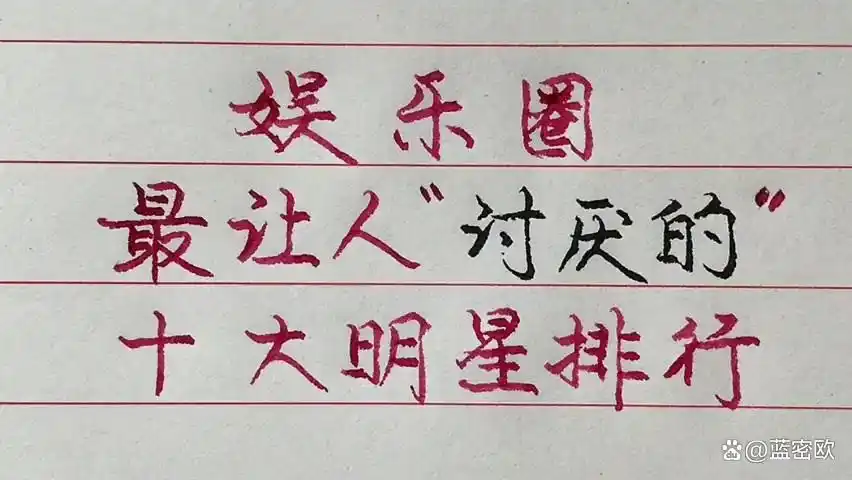 娱乐圈
最让人"讨厌的"
十大明星排行
@蓝密欧